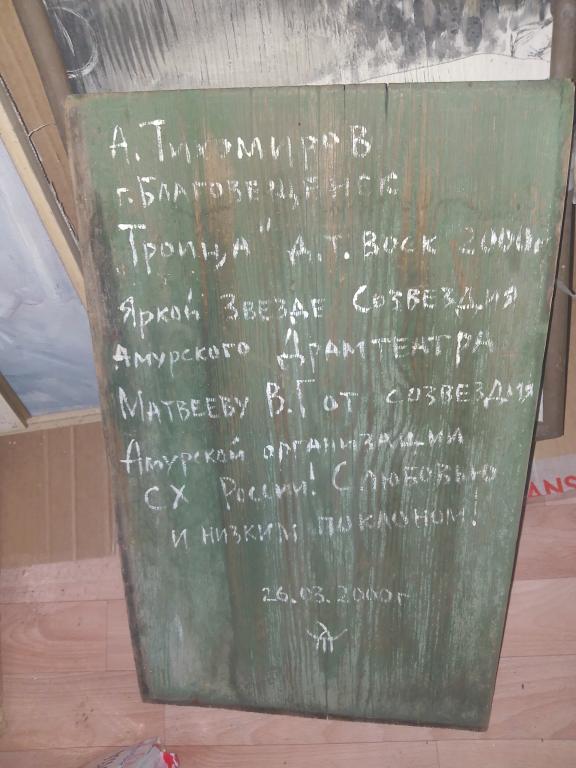 А. Тихомиров
г. Благовещенск
"Троица" д.т. воск 2000г
Яркой Звезде Созвездия
Амурского Драмтеатра
Матвееву В.Г от созвездия
Амурской организации
СХ России! С любовью
и низким поклоном!
26.03.2000г
ANS